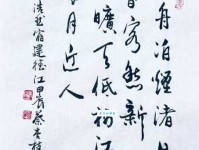 舟泊煙渚日
客愁新
曠天低樹江
月近人
浩然宿建德江甲辰蔡